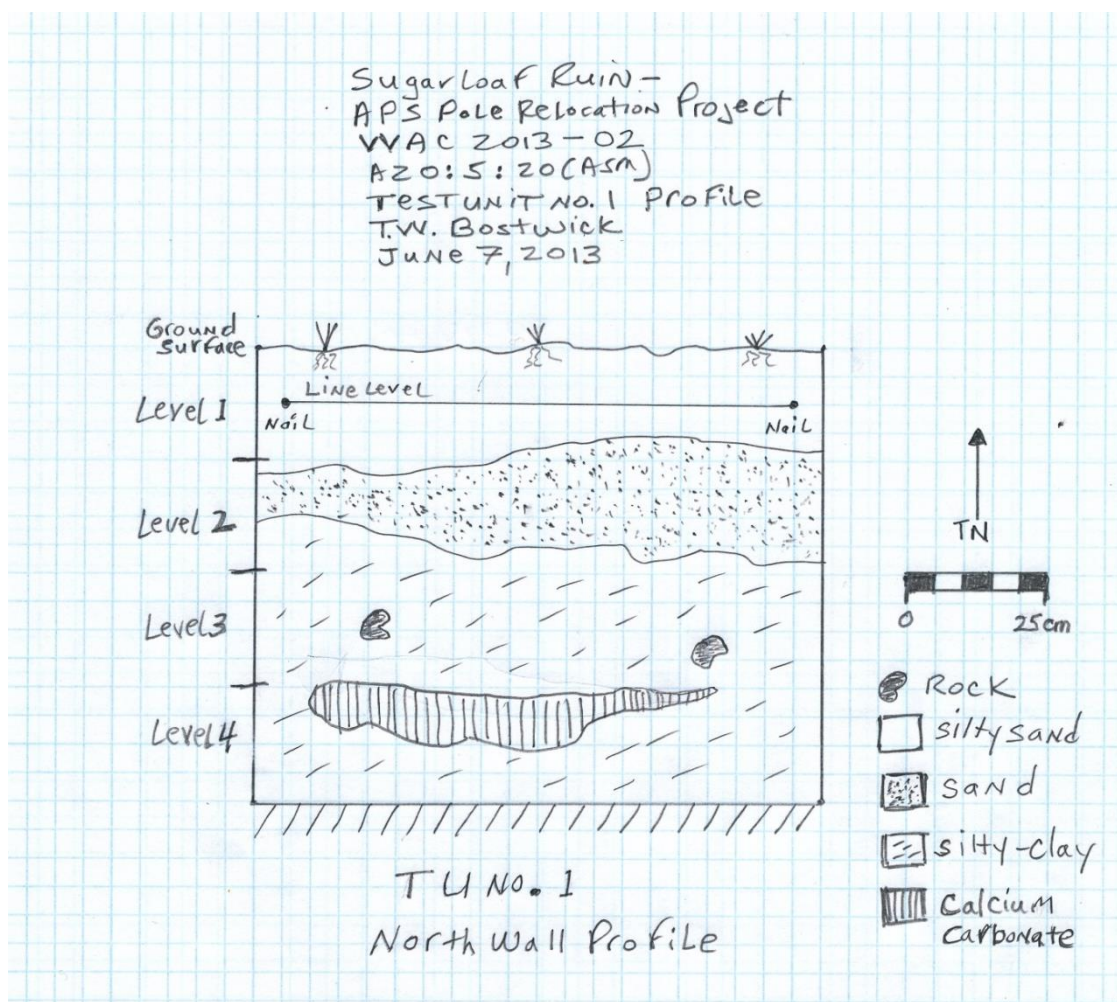 Sugarloaf Ruin-
APS Pole Relocation Project
VVAC 2013-02
AZ O:5:20 (ASM)
Test Unit No. 1 Profile
T.W. Bostwick
June 7, 2013
Ground
surface
Line Level
Level 1
Nail
Nail
Level 2
TN
0
25cm
Level 3
Rock
silty sand
Level 4
Sand
silty-clay
Calcium
Carbonate
TU No. 1
North Wall Profile